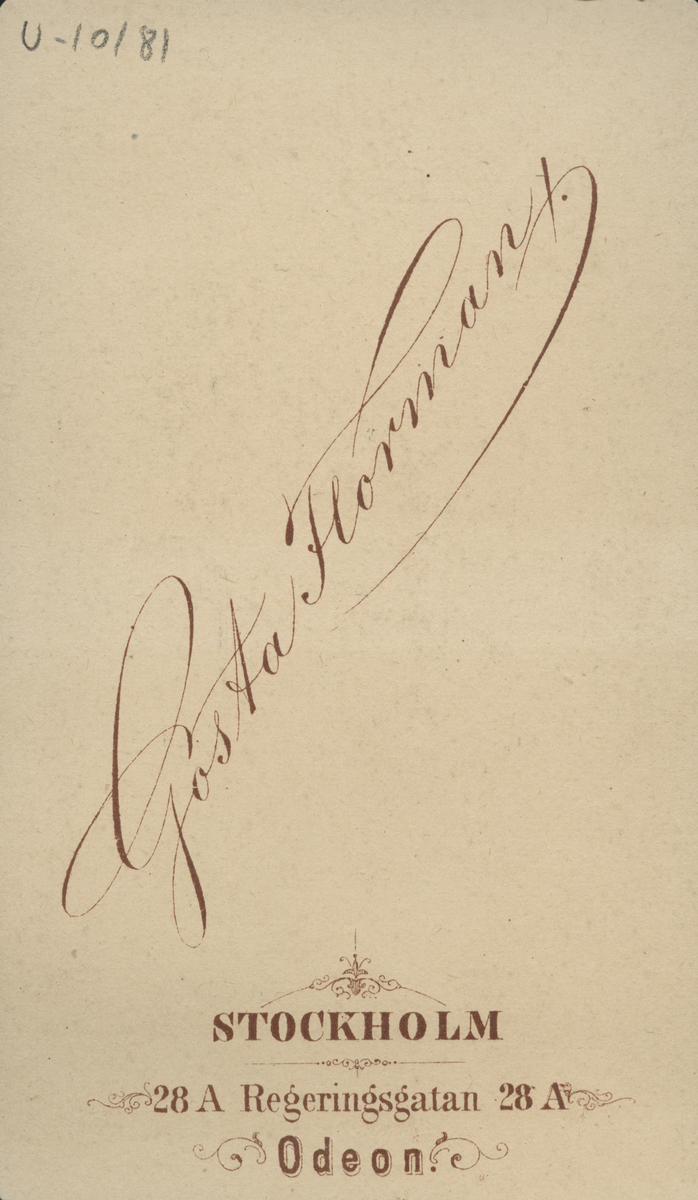 U-10/81
Gösta Florman.
STOCKHOLM
28 A Regeringsgatan 28 A
Odeon.